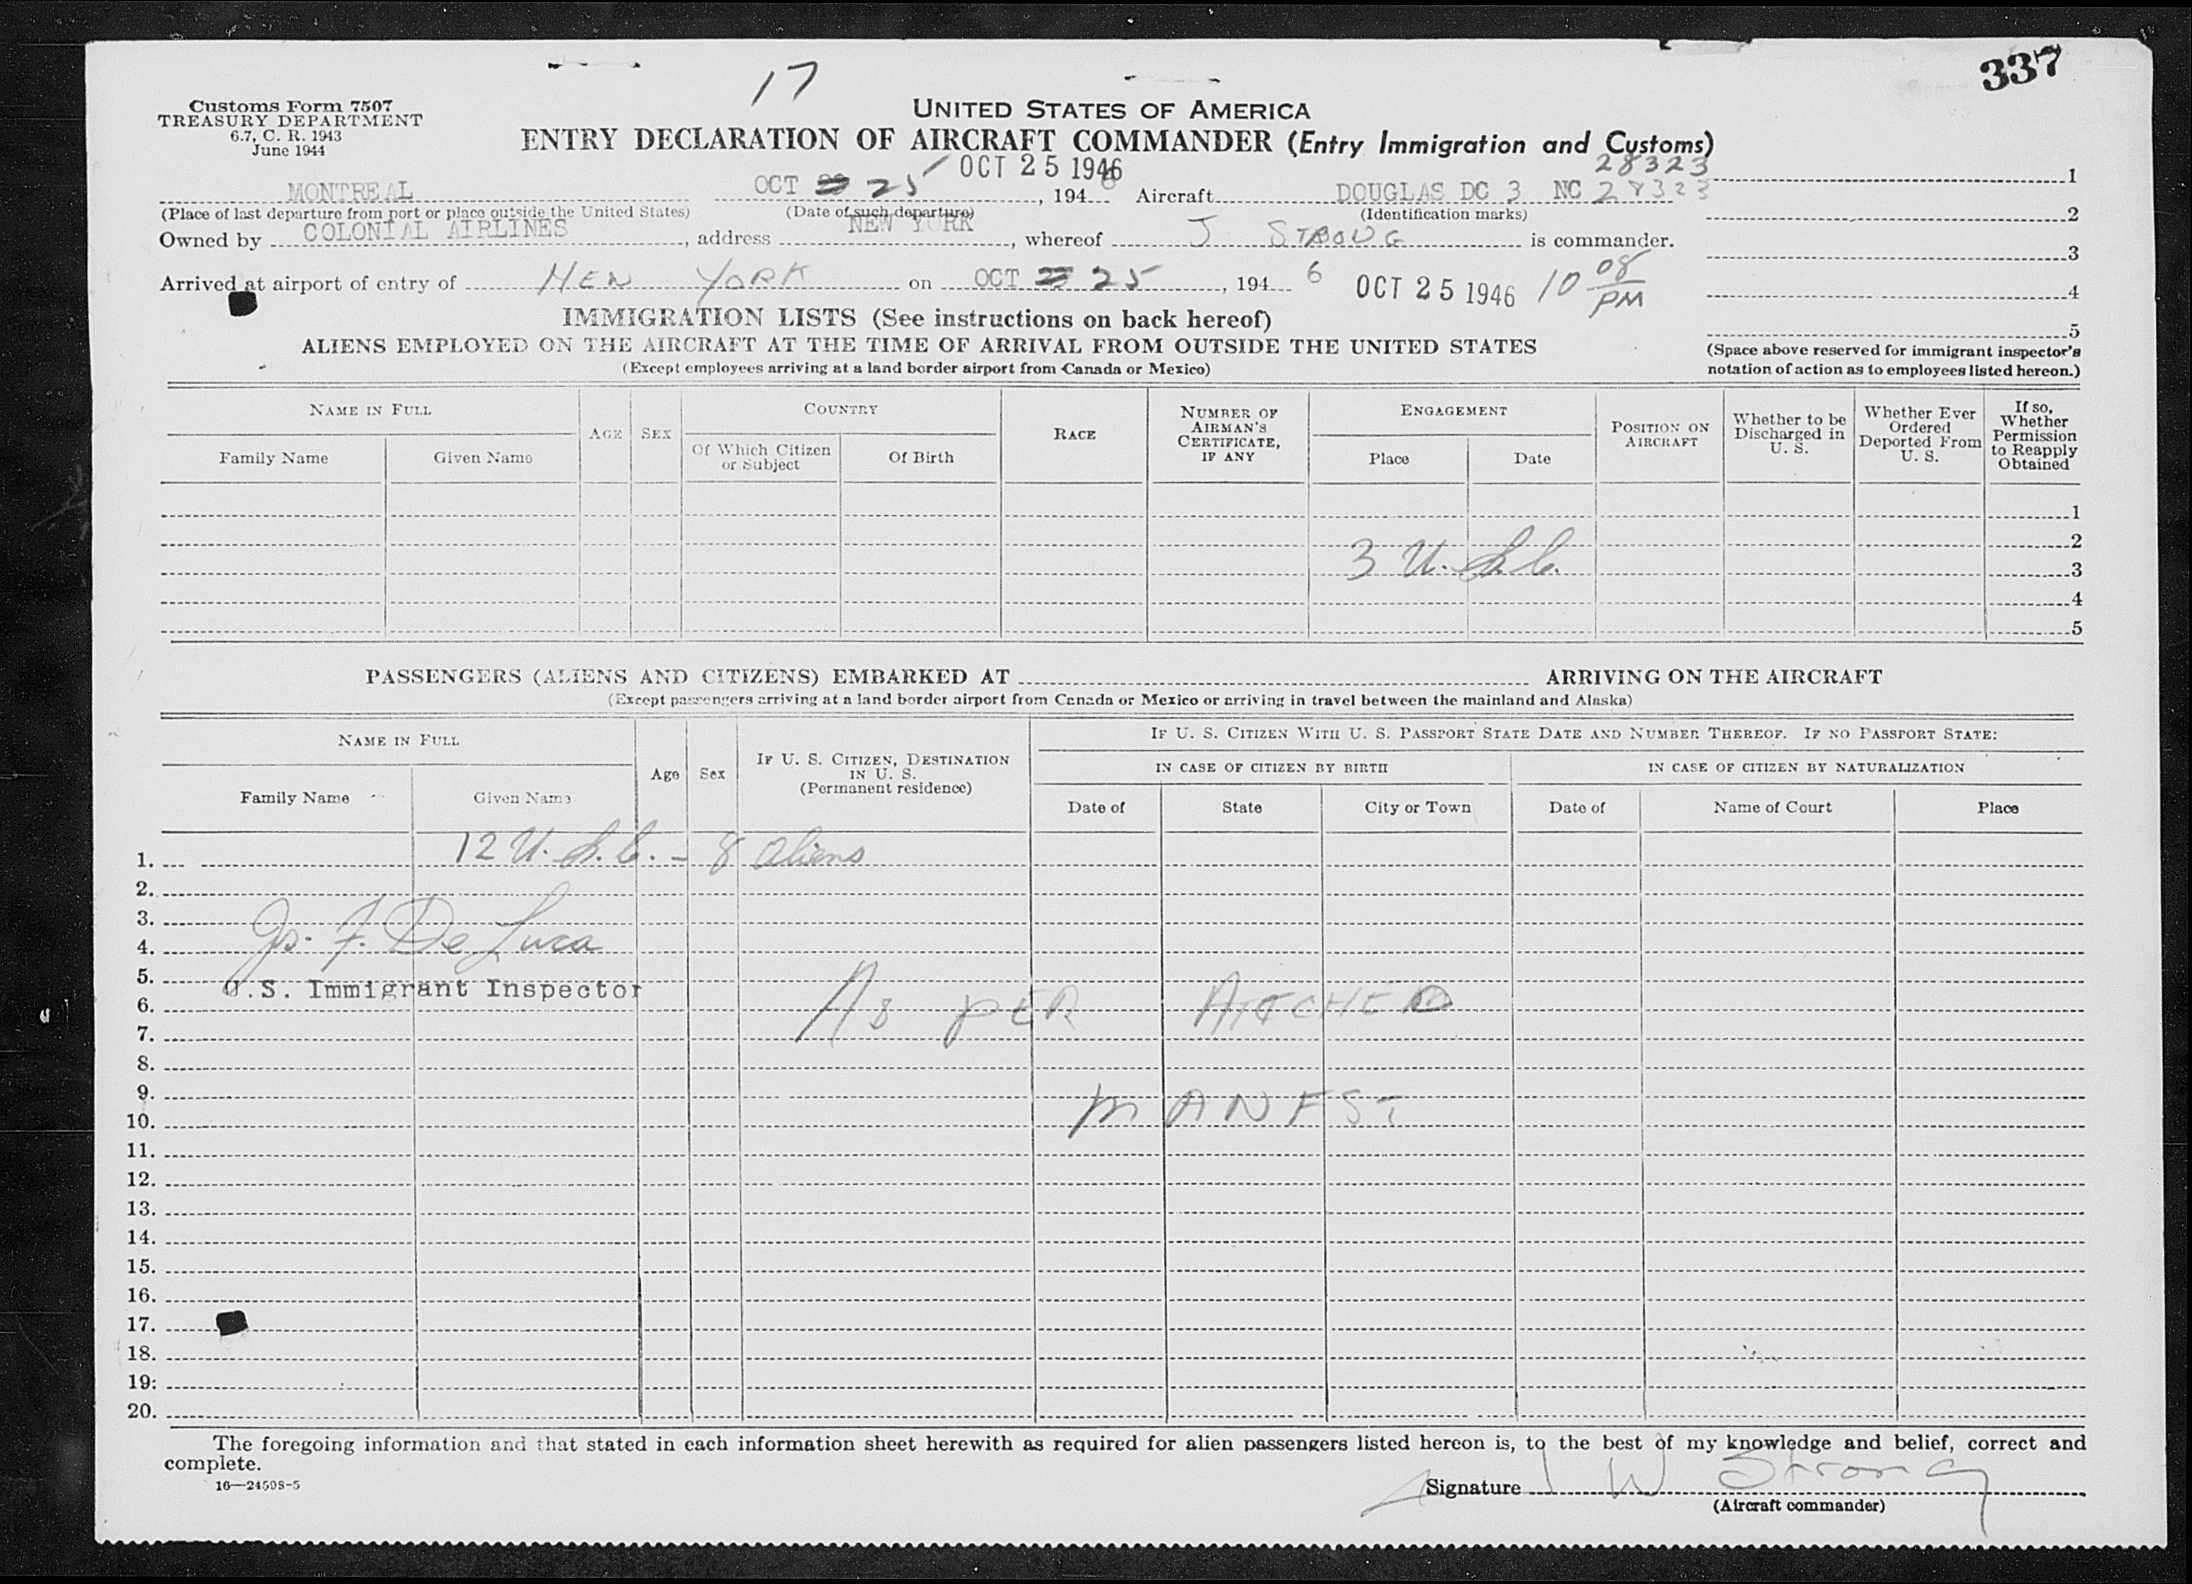 337
17
Customs Form 7507
TREASURY DEPARTMENT
6.7, C. R. 1943
June 1944
UNITED STATES OF AMERICA
ENTRY DECLARATION OF AIRCRAFT COMMANDER (Entry Immigration and Customs)
OCT 25 1946 28323
MONTREAL OCT 25, 1946 Aircraft DOUGLAS DC 3 NC 28323 1
(Place of last departure from port or place outside the United States) (Date of such departure) (Identification marks) 2
Owned by COLONIAL AIRLINES, address NEW YORK, whereof J STROUG is commander.
3
Arrived at airport of entry of NEW YORK on OCT 25, 1946 OCT 25 1946 10 08 PM
4
IMMIGRATION LISTS (See instructions on back hereof)
5
ALIENS EMPLOYED ON THE AIRCRAFT AT THE TIME OF ARRIVAL FROM OUTSIDE THE UNITED STATES
(Except employees arriving at a land border airport from Canada or Mexico)
(Space above reserved for immigrant inspector's
notation of action as to employees listed hereon.)
NAME IN FULL
Family Name Given Name
AGE SEX
COUNTRY
Of Which Citizen or Subject Of Birth
RACE
NUMBER OF AIRMAN'S CERTIFICATE, IF ANY
ENGAGEMENT
Place Date
POSITION ON AIRCRAFT
Whether to be Discharged in U. S.
Whether Ever Ordered Deported From U. S.
If so, Whether Permission to Reapply Obtained
1
2
3 U.S.C. 3
4
5
PASSENGERS (ALIENS AND CITIZENS) EMBARKED AT ARRIVING ON THE AIRCRAFT
(Except passengers arriving at a land border airport from Canada or Mexico or arriving in travel between the mainland and Alaska)
NAME IN FULL
Family Name Given Name
Age Sex
IF U. S. CITIZEN, DESTINATION IN U. S.
(Permanent residence)
IF U. S. CITIZEN WITH U. S. PASSPORT STATE DATE AND NUMBER THEREOF. IF NO PASSPORT STATE:
IN CASE OF CITIZEN BY BIRTH IN CASE OF CITIZEN BY NATURALIZATION
Date of State City or Town Date of Name of Court Place
1. 12 U.S.C. - 8 aliens
2.
3.
4. Jos. F. De Luca
5.
U.S. Immigrant Inspector
6. AS PER ATTCHED
7.
8.
9.
10. MANFST
11.
12.
13.
14.
15.
16.
17.
18.
19.
20.
The foregoing information and that stated in each information sheet herewith as required for alien passengers listed hereon is, to the best of my knowledge and belief, correct and
complete.
16—24598-5
Signature J W Strong
(Aircraft commander)